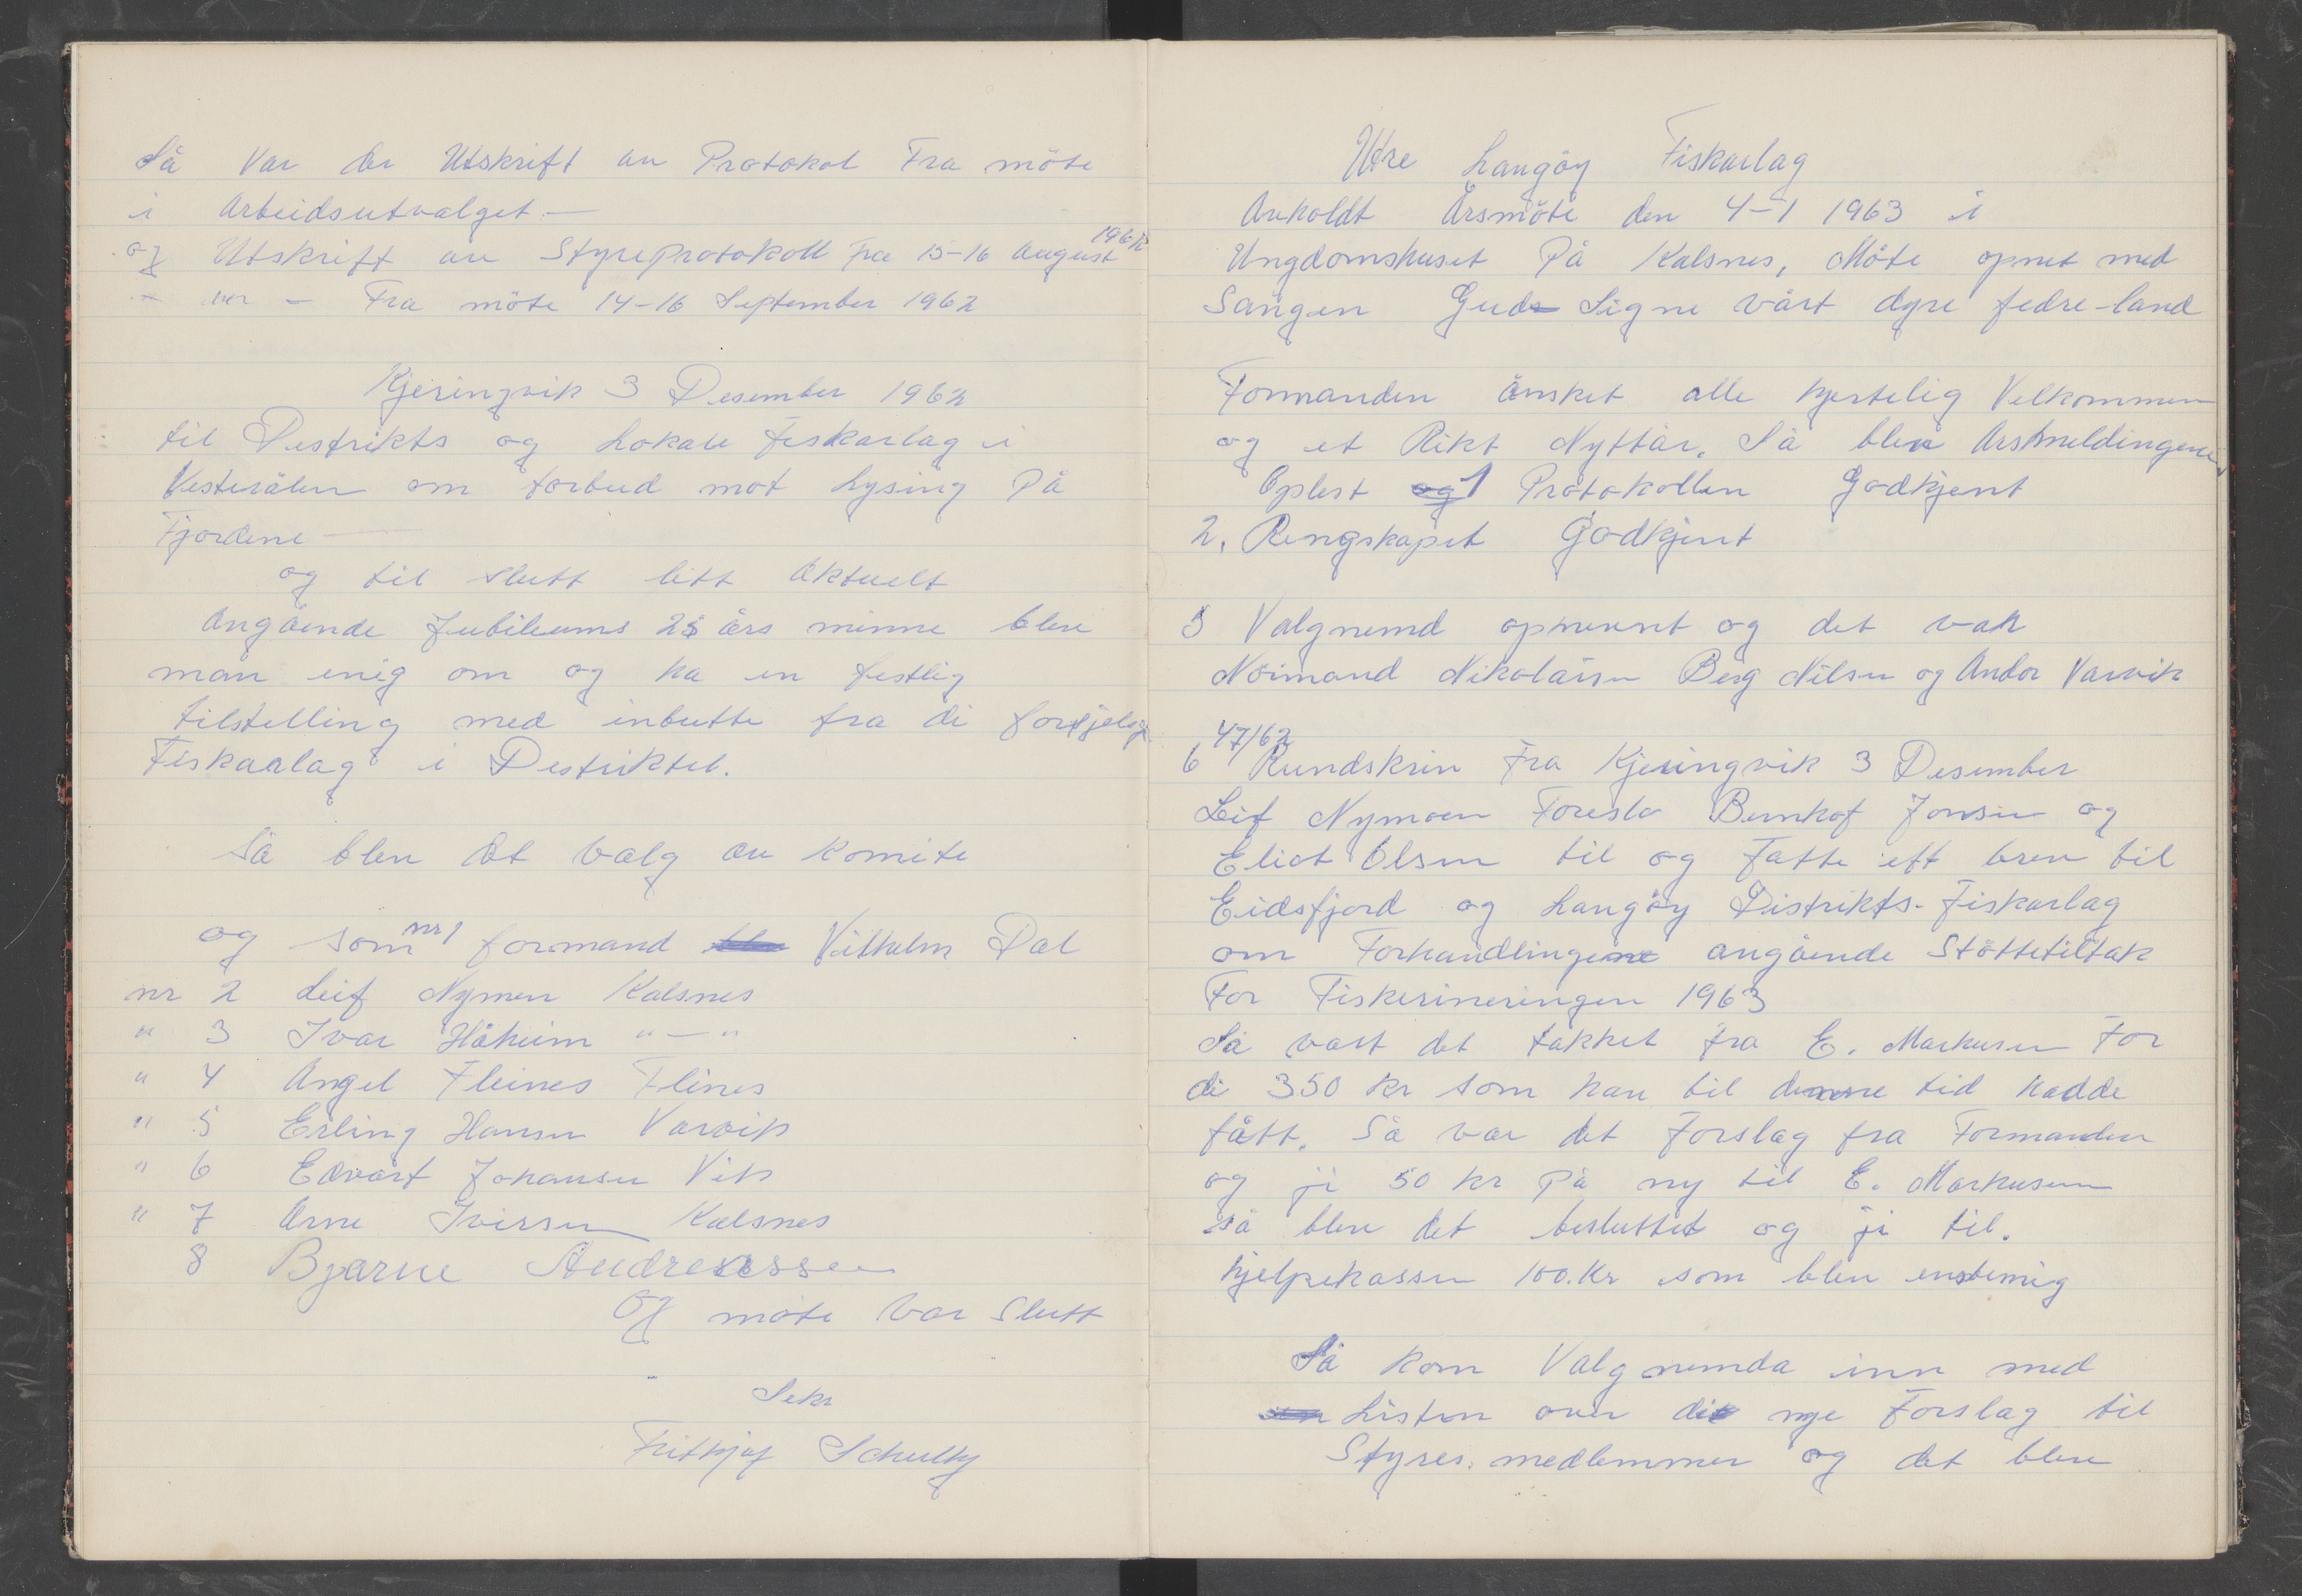 Så var der Utskrift av Protokol Fra möte
i Arbeidsutvalget. —
og Utskrift av Styreprotokoll fra 15-16 August 1962
— " — Fra möte 14-16 September 1962
Kjeringvik 3 Desember 1962
til Destrikts og Lokale Feskarlag i
Vesterålen om forbud mot Lysing På
Fjordene —
og til slutt litt Aktuelt
Angående Jubileums 25 års minne blev
man enig om og ha en festlig
tilstelling med inbutte fra di forsjelige
Fiskarlag i Destriktet.
Så blev det valg av Komite
og som nr 1 formand Vilhelm Dal
nr 2 Leif Nymen Kalsnes
" 3 Ivar Håheim " — "
" 4 Angel Fleines Flines
" 5 Erling Hansen Varvik
" 6 Edvart Johansen Vik
" 7 Arne Iversen Kalsnes
8 Bjarne Andreassen
Og möte var Slutt
Sekr
Fritjof Schultz
Ytre Langöy Fiskarlag
Avholdt Årsmöte den 4-1 1963 i
Ungdomshuset På Kalsnes, Möte opnet med
Sangen Gud Signe vårt dyre fedre-land
Formanden önsket alle hjertelig Velkommen
og et Rikt Nyttår. Så blev Årsmeldingene
Oplest 1 Protokollen Godkjent
2. Rengskapet Godkjent
3 Valgnemd opnevnt og det var
Normand Nikolaisen Berg Nilsen og Andor Varvik
47/62
6 Rundskriv Fra Kjeringvik 3 Desember
Leif Nymoen Foreslo Bernhof Jonsen og
Eliot Olsen til og Fatte ett brev til
Eidsfjord og Langöy Distrikts-Fiskarlag
om Forhandlingene angående Stöttetiltak
For Fiskerineringen 1963
Så vart det takket fra E. Markusen For
di 350 kr som han til denne tid hadde
fått. Så var det Forslag fra Formanden
og ji 50 kr på ny til E. Markusen
så blev det besluttet og ji til.
hjelpekassen 100. Kr som blev enstemig
Så kom Valgnemda inn med
Listen over di nye Forslag til
Styres. medlemmer og det blev